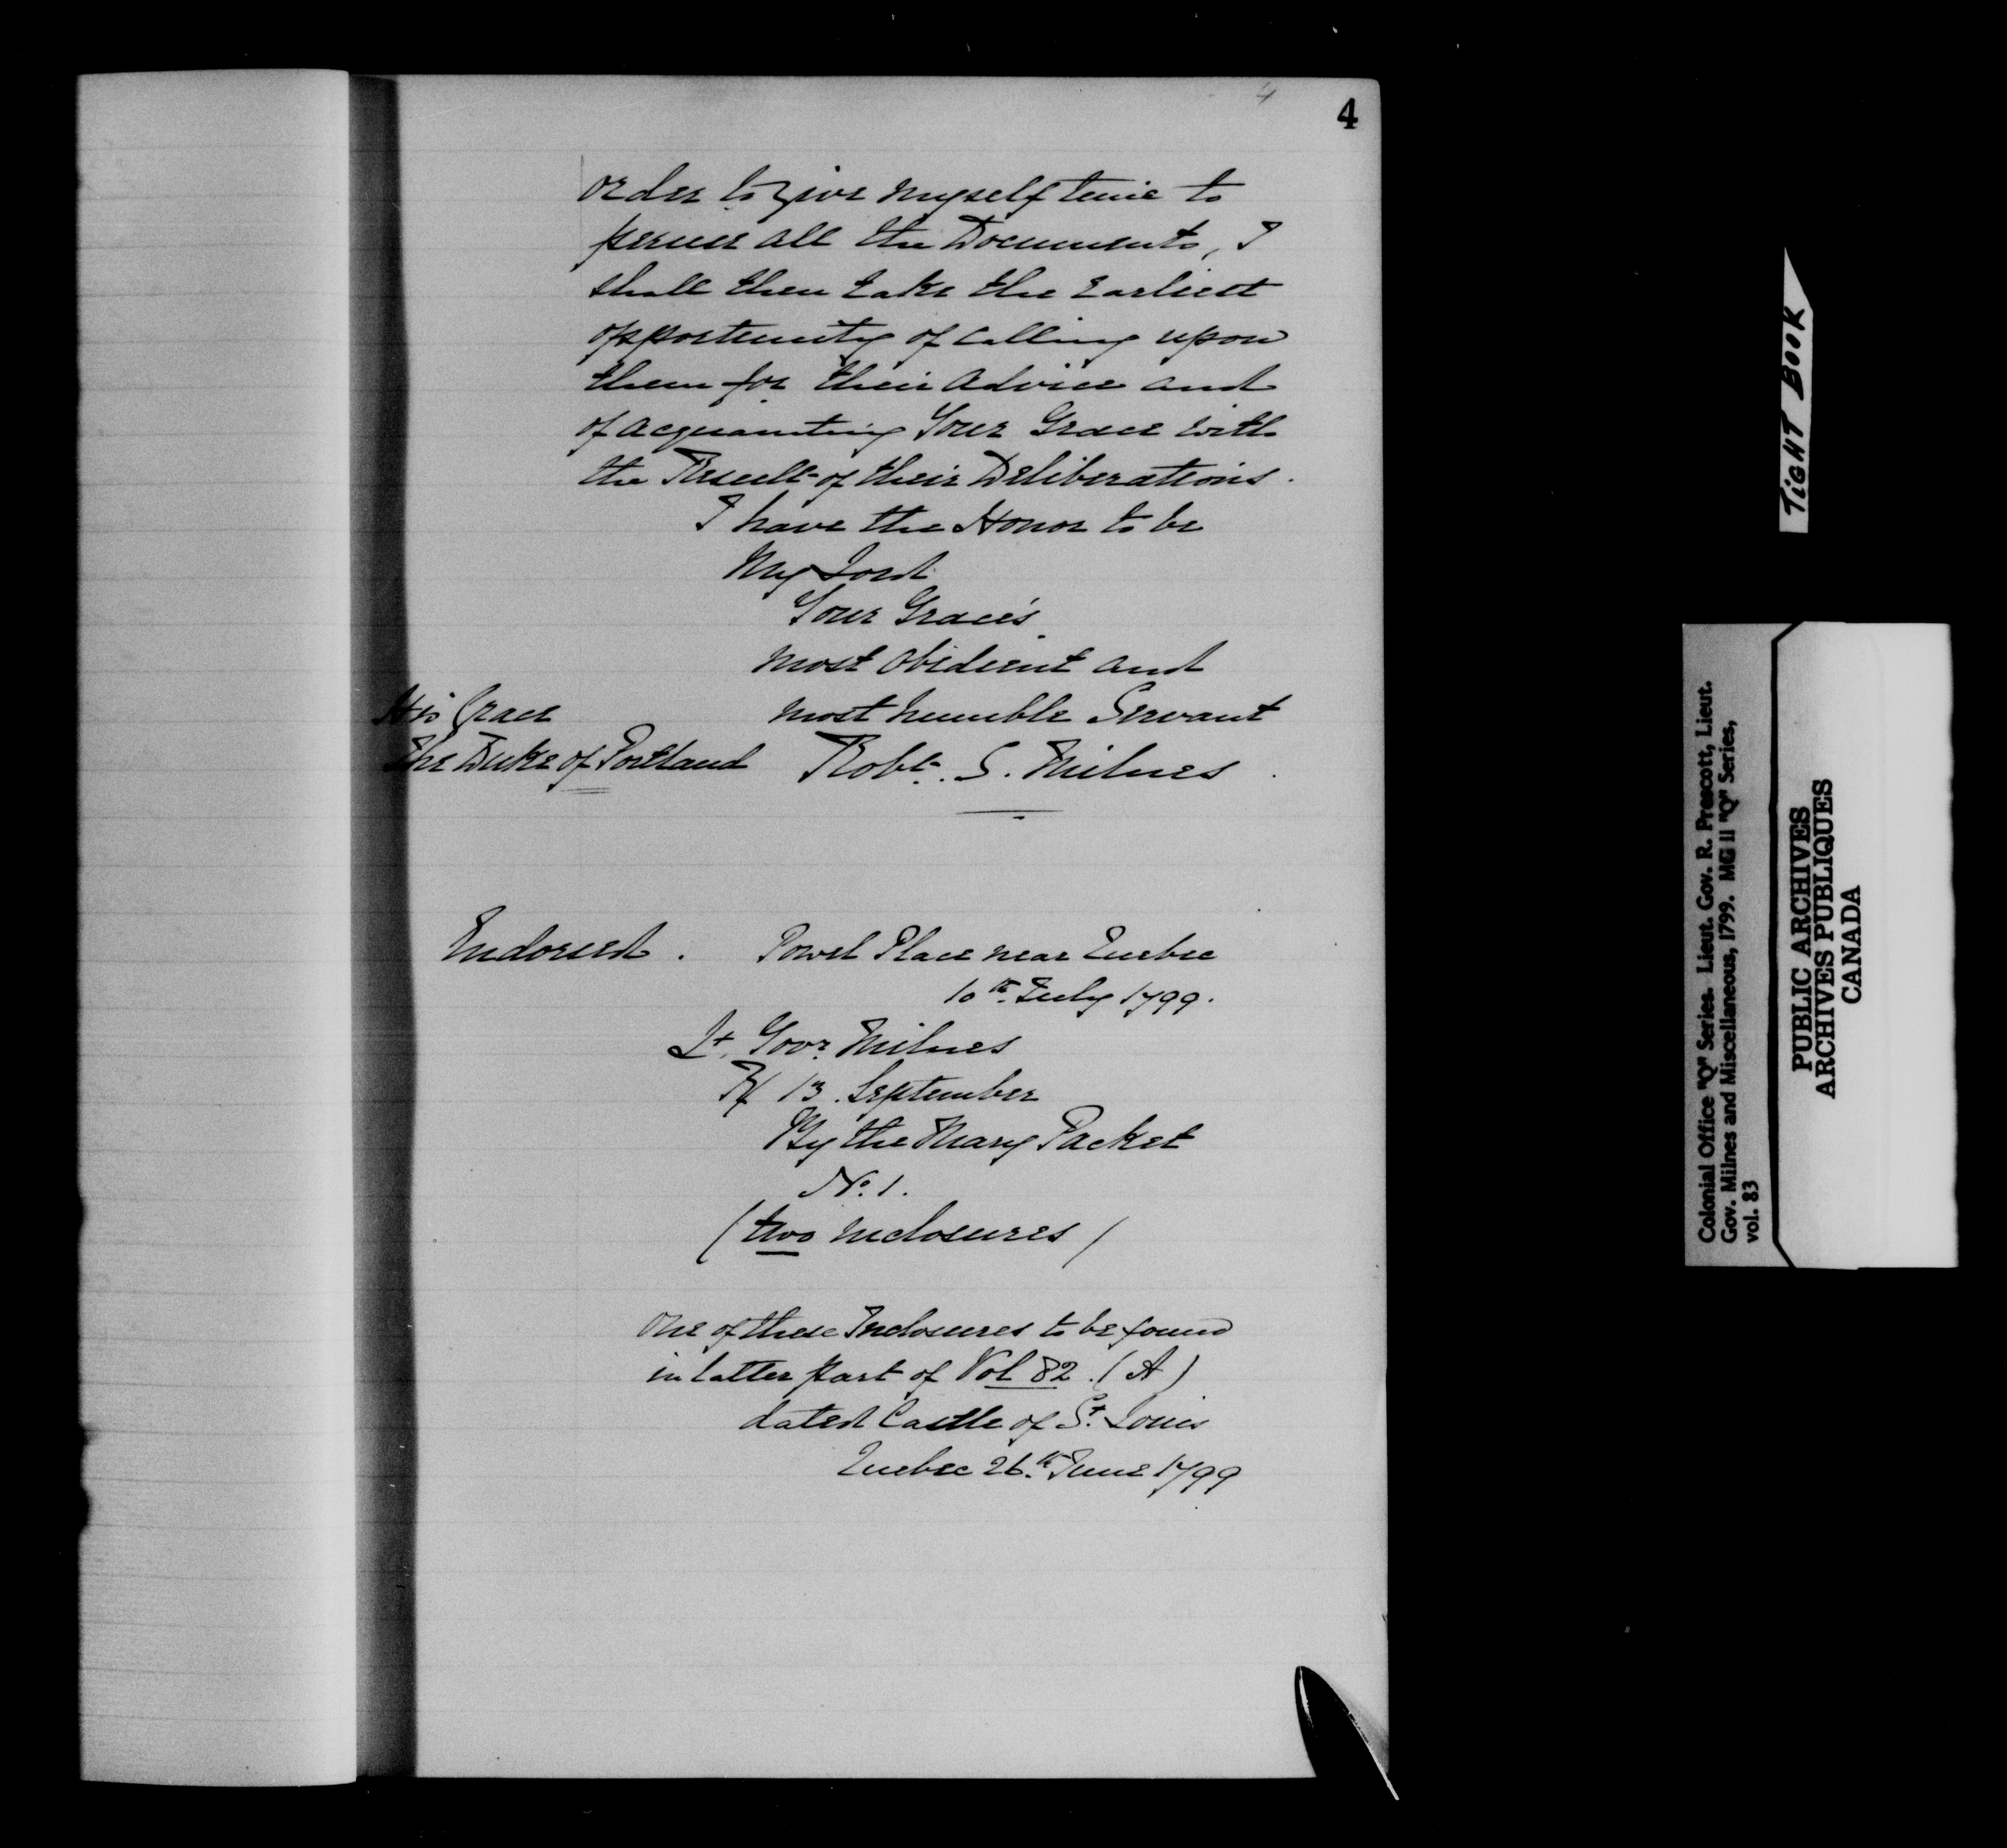 4
4
order to give myself time to
peruse all the Documents, I
shall then take the Earliest
opportunity of calling upon
them for their advice and
of acquainting Your Grace with
the Result of their Deliberations.
I have the Honor to be
My Lord
Your Grace's
most obedient and
His Grace most humble Servant
The Duke of Portland Robt. S. Milnes.
Endorsed. Powel Place near Quebec
10th July 1799.
Lt. Govr. Milnes
R/ 13. September
By the Mary Packet
No. 1.
(two Inclosures)
One of these Inclosures to be found
in latter part of Vol 82. (A)
dated Castle of St. Louis
Quebec 26.th June 1799
TIGHT BOOK
Colonial Office "Q" Series. Lieut. Gov. R. Prescott, Lieut.
Gov. Milnes and Miscellaneous, 1799. MG 11 "Q" Series,
vol. 83
PUBLIC ARCHIVES
ARCHIVES PUBLIQUES
CANADA